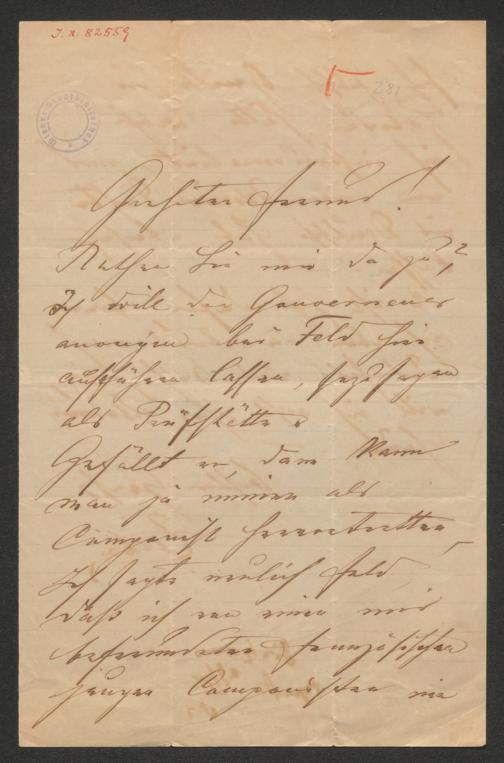 J. N. 82559
281
Geehrter Freund!
Rathen Sie mir da zu?
Ich will den Gouverneur
anonym bei Feld hier
aufführen lassen, sozusagen
als Prüfstätte.
Gefällt er, dann kann
man ja immer als
Componist hervortretten,
Ich sagte neulich Feld,
daß ich von einem mir
befreundeten französischen
jungen Componisten